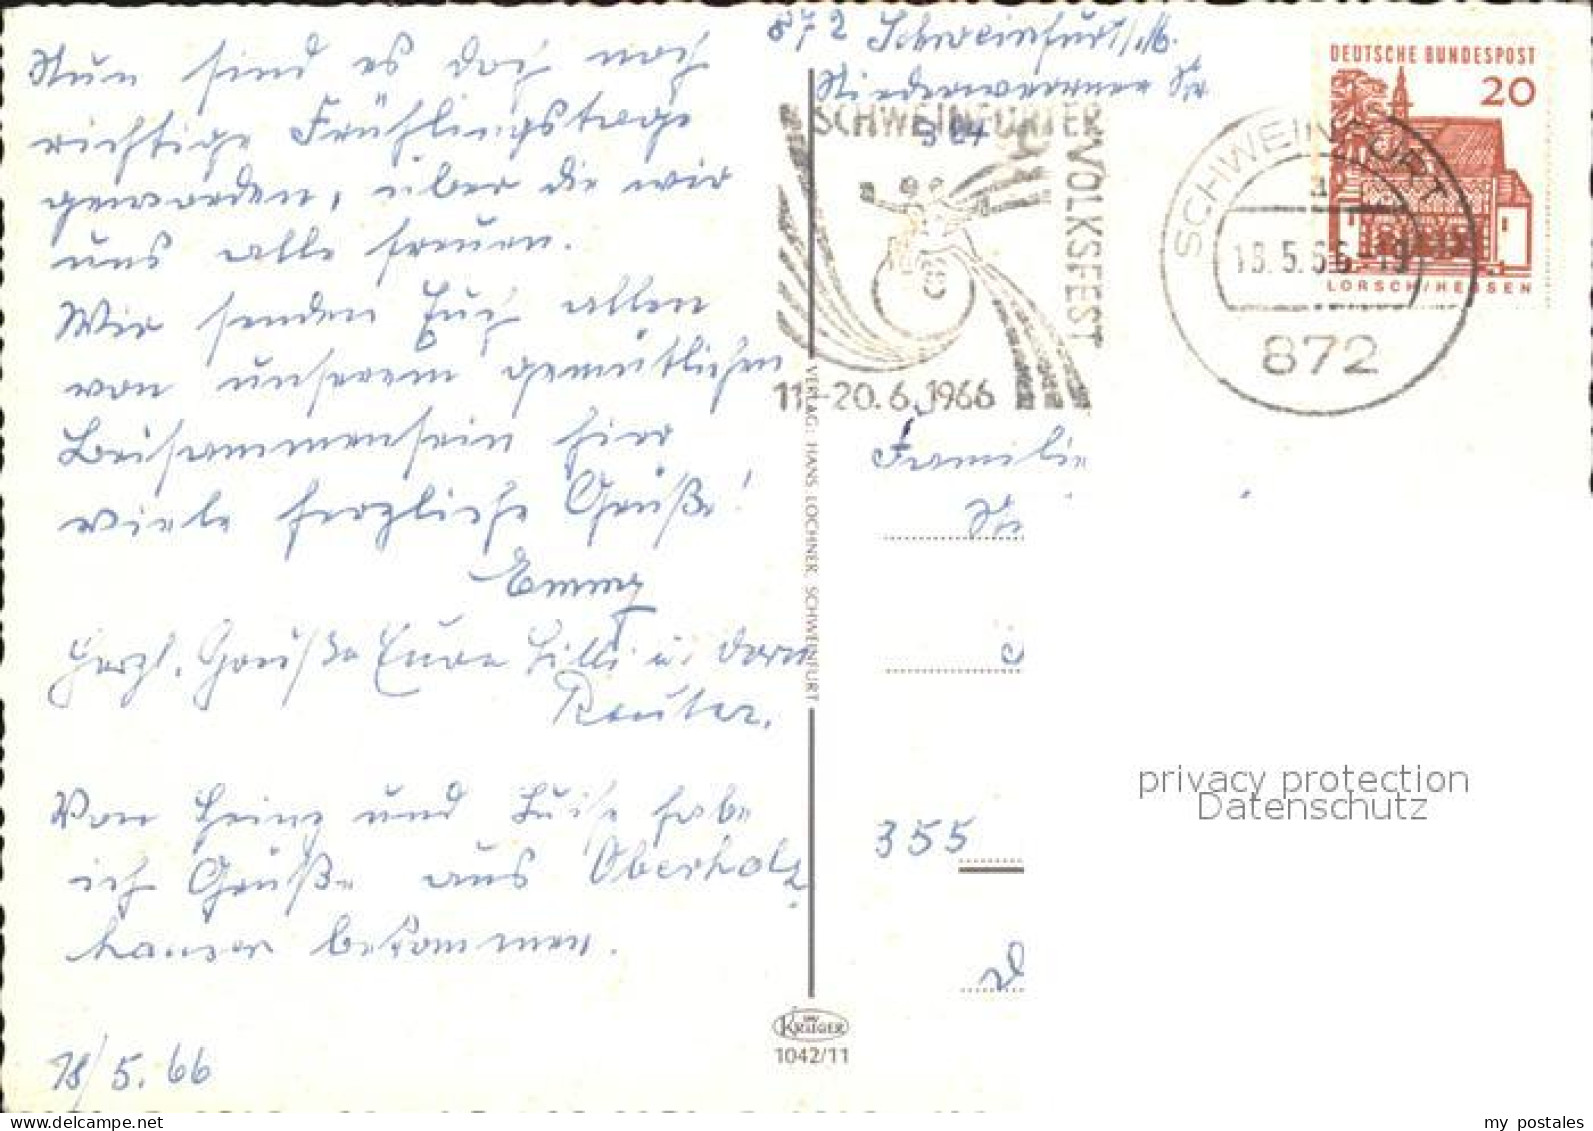 Nun sind es doch noch
richtige Frühlingstage
geworden, über die wir
uns alle freuen.
Wir senden Euch allen
von unserem gemütlichen
Beisammensein hier
viele herzliche Grüße!
Emmy
Herzl. Grüße Eure Lilli u.
Reuter.
Von Heinz und Luise habe
ich Grüße aus Oberholz
hausen bekommen.
18/5.66
872 Schweinfurt/M.
Niederwerrner Str
SCHWEINFURTER
VOLKSFEST
11.-20.6.1966
DEUTSCHE BUNDESPOST
20
LORSCH/HESSEN
SCHWEINFURT
18.5.66-19
872
VERLAG: HANS LOCHNER, SCHWEINFURT
Familie
355
KRÜGER
1042/11
privacy protection
Datenschutz
my postales